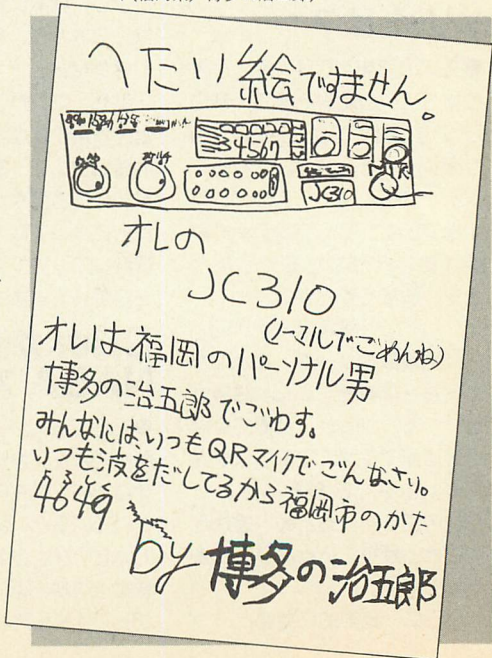 へたい絵ですません。
4567
JC310
オレの
JC310
(ノーマルでごめんね)
オレは福岡のパーソナル男
博多の治五郎でごわす。
みんなには、いつもQRマイクでごんなさい。
いつも波をだしてるから福岡市のかた
4649
by 博多の治五郎